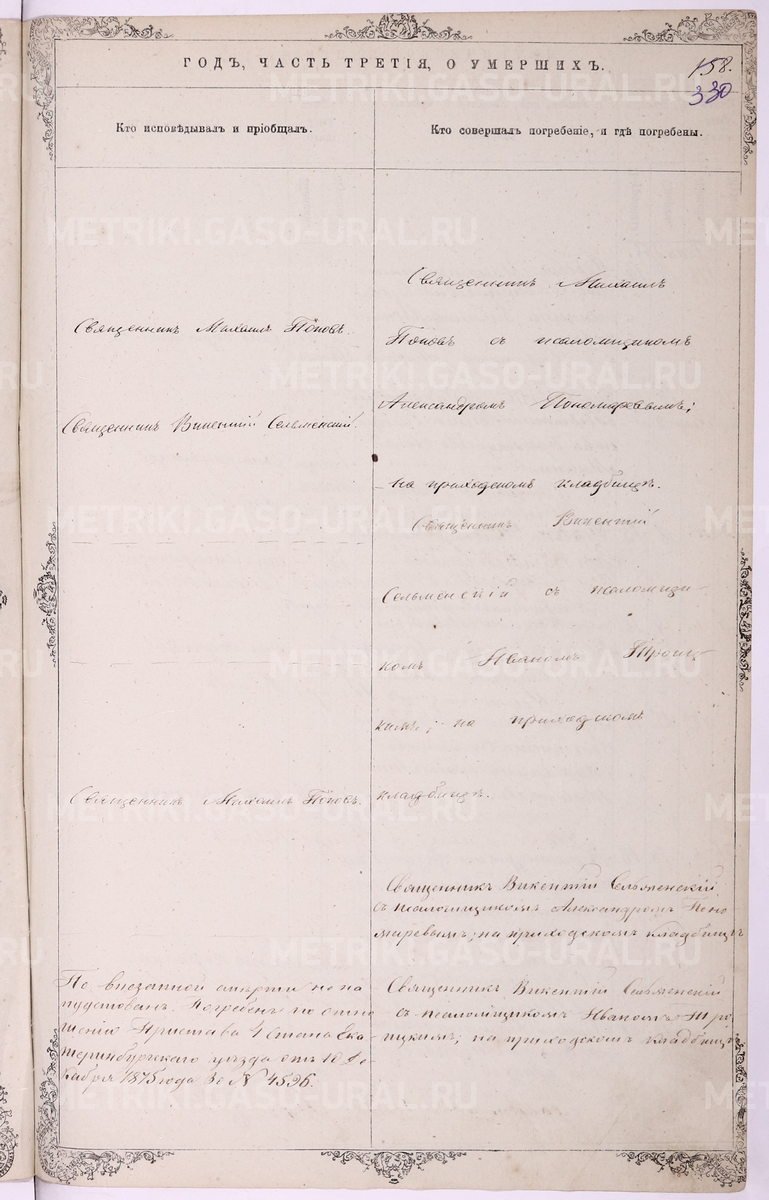 ГОДЪ, ЧАСТЬ ТРЕТІЯ, О УМЕРШИХЪ.
158.
330
Кто исповѣдывалъ и пріобщалъ.
Кто совершалъ погребеніе, и гдѣ погребены.
Священникъ Михаилъ Поповъ.
Священникъ Викентій Сельменскій.
Священникъ Михаилъ Поповъ.
По внезапной смерти не на
путствованъ. Погребенъ по отно
шенію Пристава 1 Стана Ека
теринбургскаго уѣзда отъ 10 Де
кабря 1875 года за № 4596.
Священникъ Михаилъ
Поповъ съ псаломщикомъ
Александромъ Пономаревымъ;
на приходскомъ кладбищѣ.
Священникъ Викентій
Сельменскій съ псаломщи-
комъ Иваномъ Троиц-
кимъ; на приходскомъ
кладбищѣ.
Священникъ Викентій Сельменскій
съ псаломщикомъ Александромъ Поно
маревымъ; на приходскомъ кладбищѣ
Священникъ Викентій Сельменскій
съ псаломщикомъ Иваномъ Тро
ицкимъ; на приходскомъ кладбищѣ
METRIKI.GASO-URAL.RU